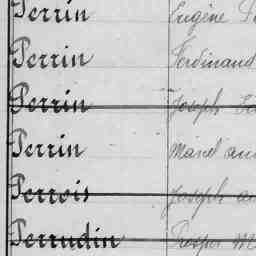 Perrin Eugène
Perrin Ferdinand
Perrin Joseph
Perrin
Perrois Joseph
Perrudin Prosper